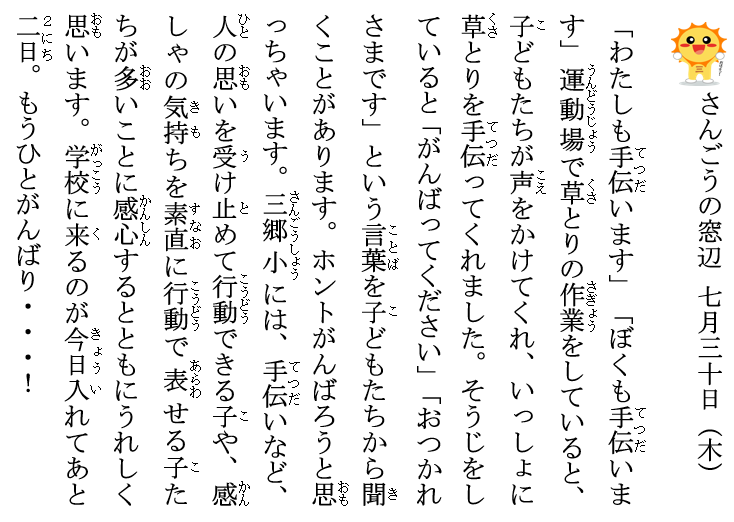 さんごうの窓辺 七月三十日（木）
「わたしも手伝います」「ぼくも手伝いま
す」運動場で草とりの作業をしていると、
子どもたちが声をかけてくれ、いっしょに
草とりを手伝ってくれました。そうじをし
ていると「がんばってください」「おつかれ
さまです」という言葉を子どもたちから聞
くことがあります。ホントがんばろうと思
っちゃいます。三郷小には、手伝いなど、
人の思いを受け止めて行動できる子や、感
しゃの気持ちを素直に行動で表せる子た
ちが多いことに感心するとともにうれしく
思います。学校に来るのが今日入れてあと
二日。もうひとがんばり・・・！